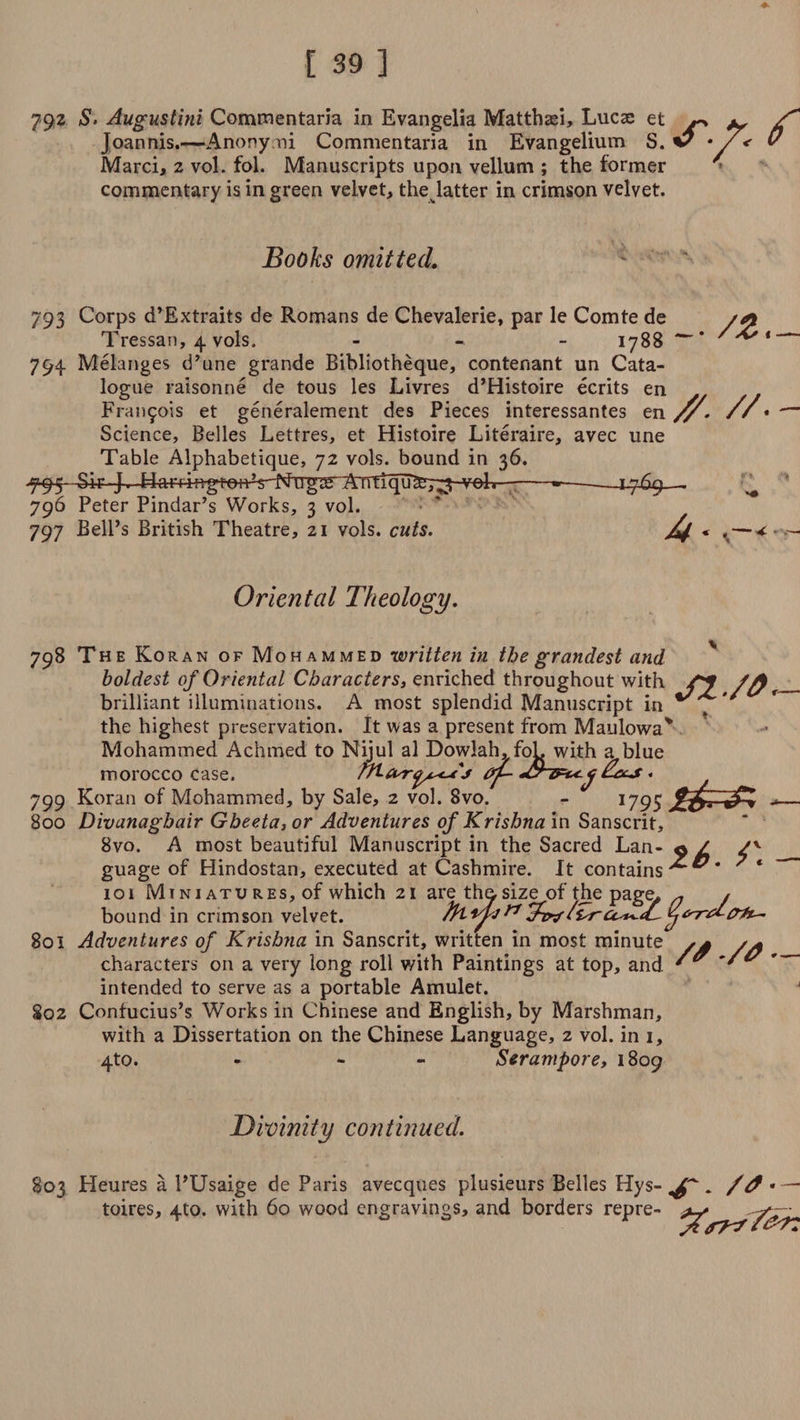 [ 39 ]
792 S. Augustini Commentaria in Evangelia Matthæi, Lucæ et
Joannis.—Anonymi Commentaria in Evangelium S. 5. 7. 6
Marci, 2 vol. fol. Manuscripts upon vellum; the former
commentary is in green velvet, the latter in crimson velvet.
Books omitted.
793 Corps d'Extraits de Romans de Chevalerie, par le Comte de
Tressan, 4 vols. - - - 1788 —. 12. —
794 Mélanges d'une grande Bibliothèque, contenant un Cata-
logue raisonné de tous les Livres d'Histoire écrits en
François et généralement des Pieces interessantes en 11. 11. —
Science, Belles Lettres, et Histoire Litéraire, avec une
Table Alphabetique, 72 vols. bound in 36.
795 Sir J. Harrington's Nugæ Antiquæ, 3 vol. 1769
796 Peter Pindar's Works, 3 vol.
797 Bell's British Theatre, 21 vols. cuts. 4. —. —
Oriental Theology.
798 THE KORAN OF MOHAMMED written in the grandest and
boldest of Oriental Characters, enriched throughout with 52. 10. —
brilliant illuminations. A most splendid Manuscript in
the highest preservation. It was a present from Maulowa
Mohammed Achmed to Nijul al Dowlah, fol. with a blue
morocco case. Marquess of Douglas.
799 Koran of Mohammed, by Sale, 2 vol. 8vo. - 1795
800 Divanaghair Gheeta, or Adventures of Krishna in Sanscrit,
8vo. A most beautiful Manuscript in the Sacred Lan- 26. 5. —
guage of Hindostan, executed at Cashmire. It contains
101 MINIATURES, of which 21 are the size of the page,
bound in crimson velvet. and Gordon
801 Adventures of Krishna in Sanscrit, written in most minute
characters on a very long roll with Paintings at top, and 10. 10. —
intended to serve as a portable Amulet.
802 Confucius's Works in Chinese and English, by Marshman,
with a Dissertation on the Chinese Language, 2 vol. in 1,
4to. - - - Serampore, 1809
Divinity continued.
803 Heures à l'Usaige de Paris avecques plusieurs Belles Hys- 5. 10. —
toires, 4to. with 60 wood engravings, and borders repre-